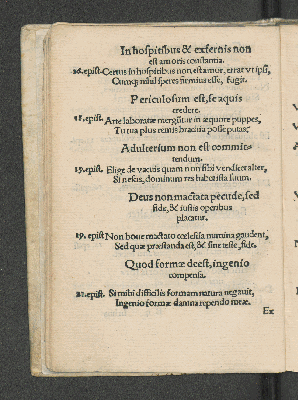 In hospitibus & externis non
est amoris constantia.
16. epist. Certus in hospitibus non est amor, errat ut ipsi,
Cumq; nihil speres firmius esse, fugit.
Periculosum est, se aquis
credere.
18. epist. Arte laboratæ merguntur in æquore puppes,
Tu tua plus remis brachia posse putas?
Adulterium non est commit-
tendum.
19. epist. Elige de vacuis quam non sibi vendicet alter,
Si nescis, dominum res habet ista suum.
Deus non mactata pecude, sed
fide, & iustis operibus
placatur.
19. epist Non boue mactato cœlestia numina gaudent,
Sed quæ præstanda est, & sine teste, fide.
Quod formæ deest, ingenio
compensa.
21. epist. Si mihi difficilis formam natura negauit,
Ingenio formæ damna rependo meæ.
Ex